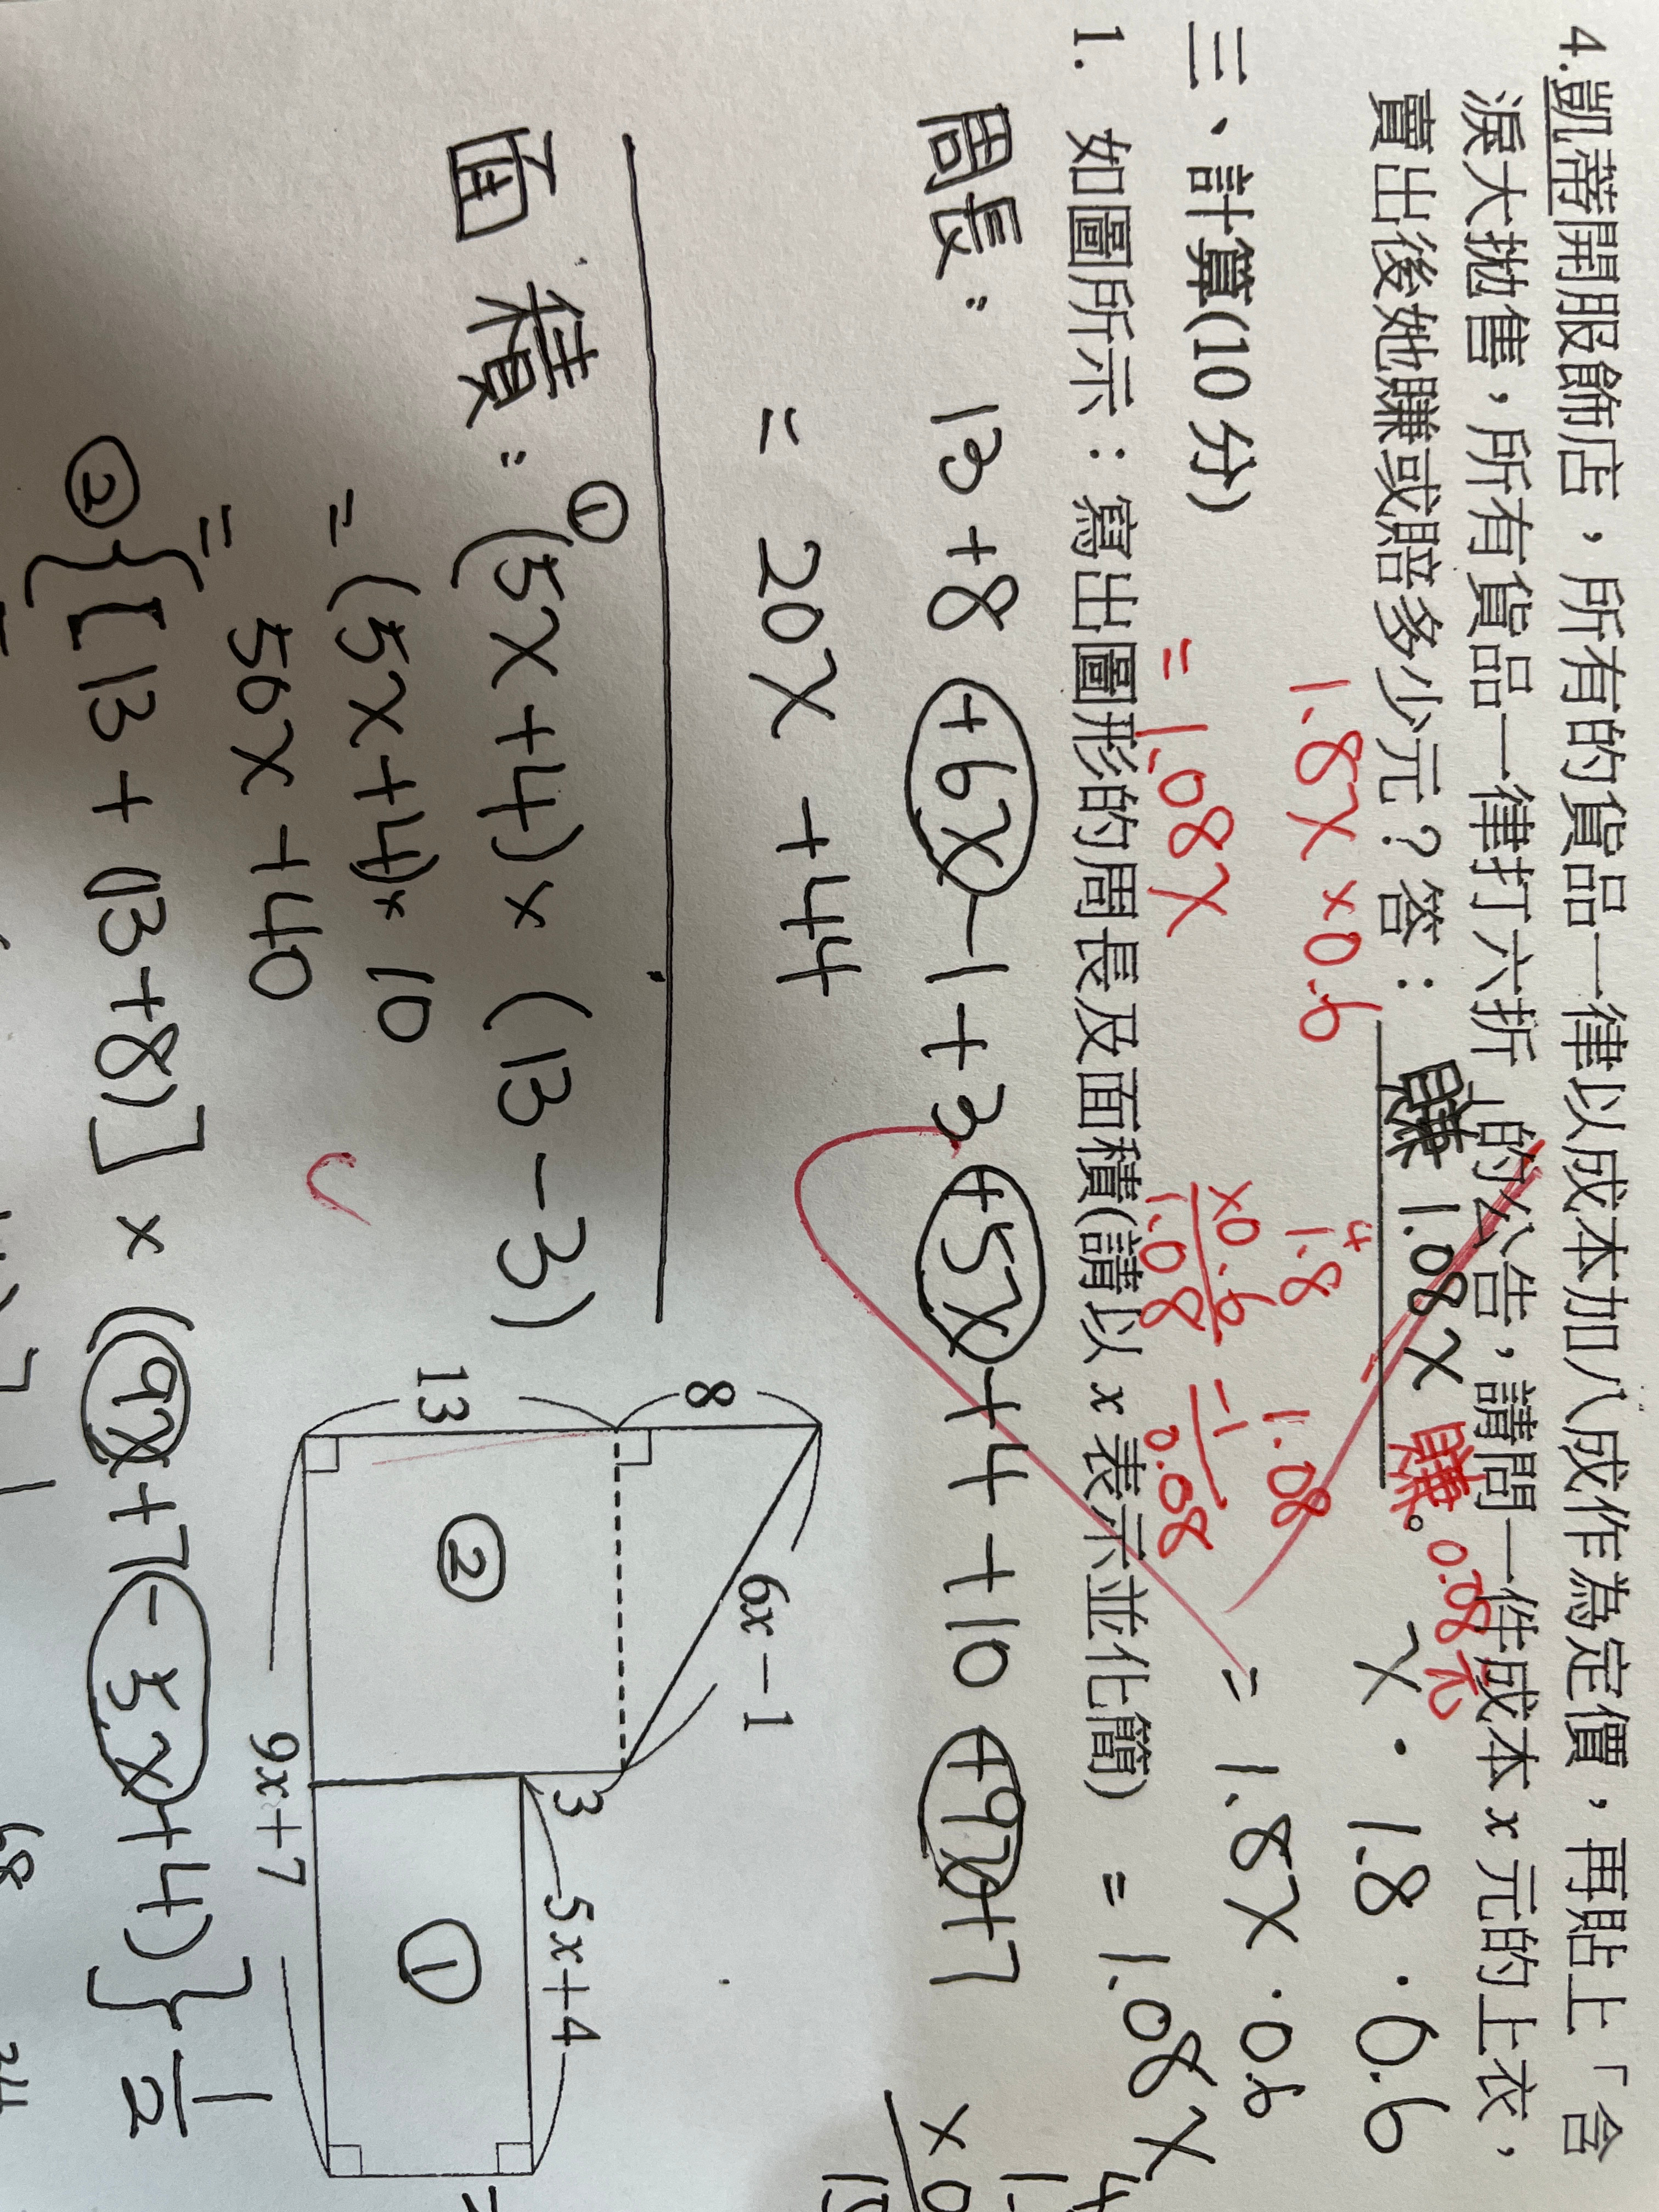 4.凱蒂開服飾店，所有的貨品一律以成本加八成作為定價，再貼上「含
淚大拋售，所有貨品一律打六折」的公告，請問一件成本 x 元的上衣，
賣出後她賺或賠多少元？答：賺 1.08x 賺。0.08元
x · 1.8 · 0.6
= 1.8x · 0.6
= 1.08x
1.8x × 0.6
= 1.08x
4
1.8
×0.6
1.08
1.08
-1
0.08
三、計算(10 分)
1. 如圖所示：寫出圖形的周長及面積(請以 x 表示並化簡)
周長: 13+8+6x-1+3+5x+4+10+9x+7
= 20x+44
面積: ① (5x+4)×(13-3)
= (5x+4)×10
= 50x+40
② {[13+(13+8)]×(9x+7-5x+4)}1/2
8
13
6x−1
3
5x+4
9x+7
②
①